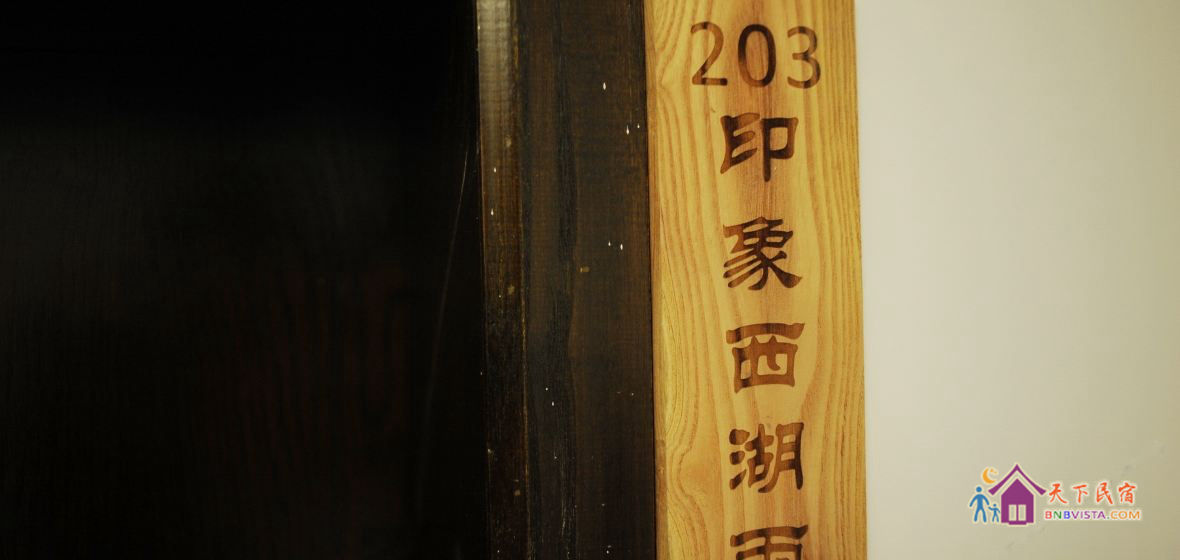 203
印象西湖雨
天下民宿
BNBVISTA.COM